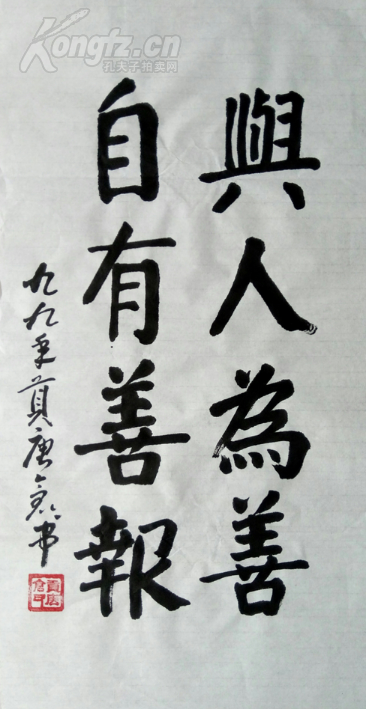 與人為善
自有善報
九九年黄唐倉书
Kongfz.cn
孔夫子拍卖网